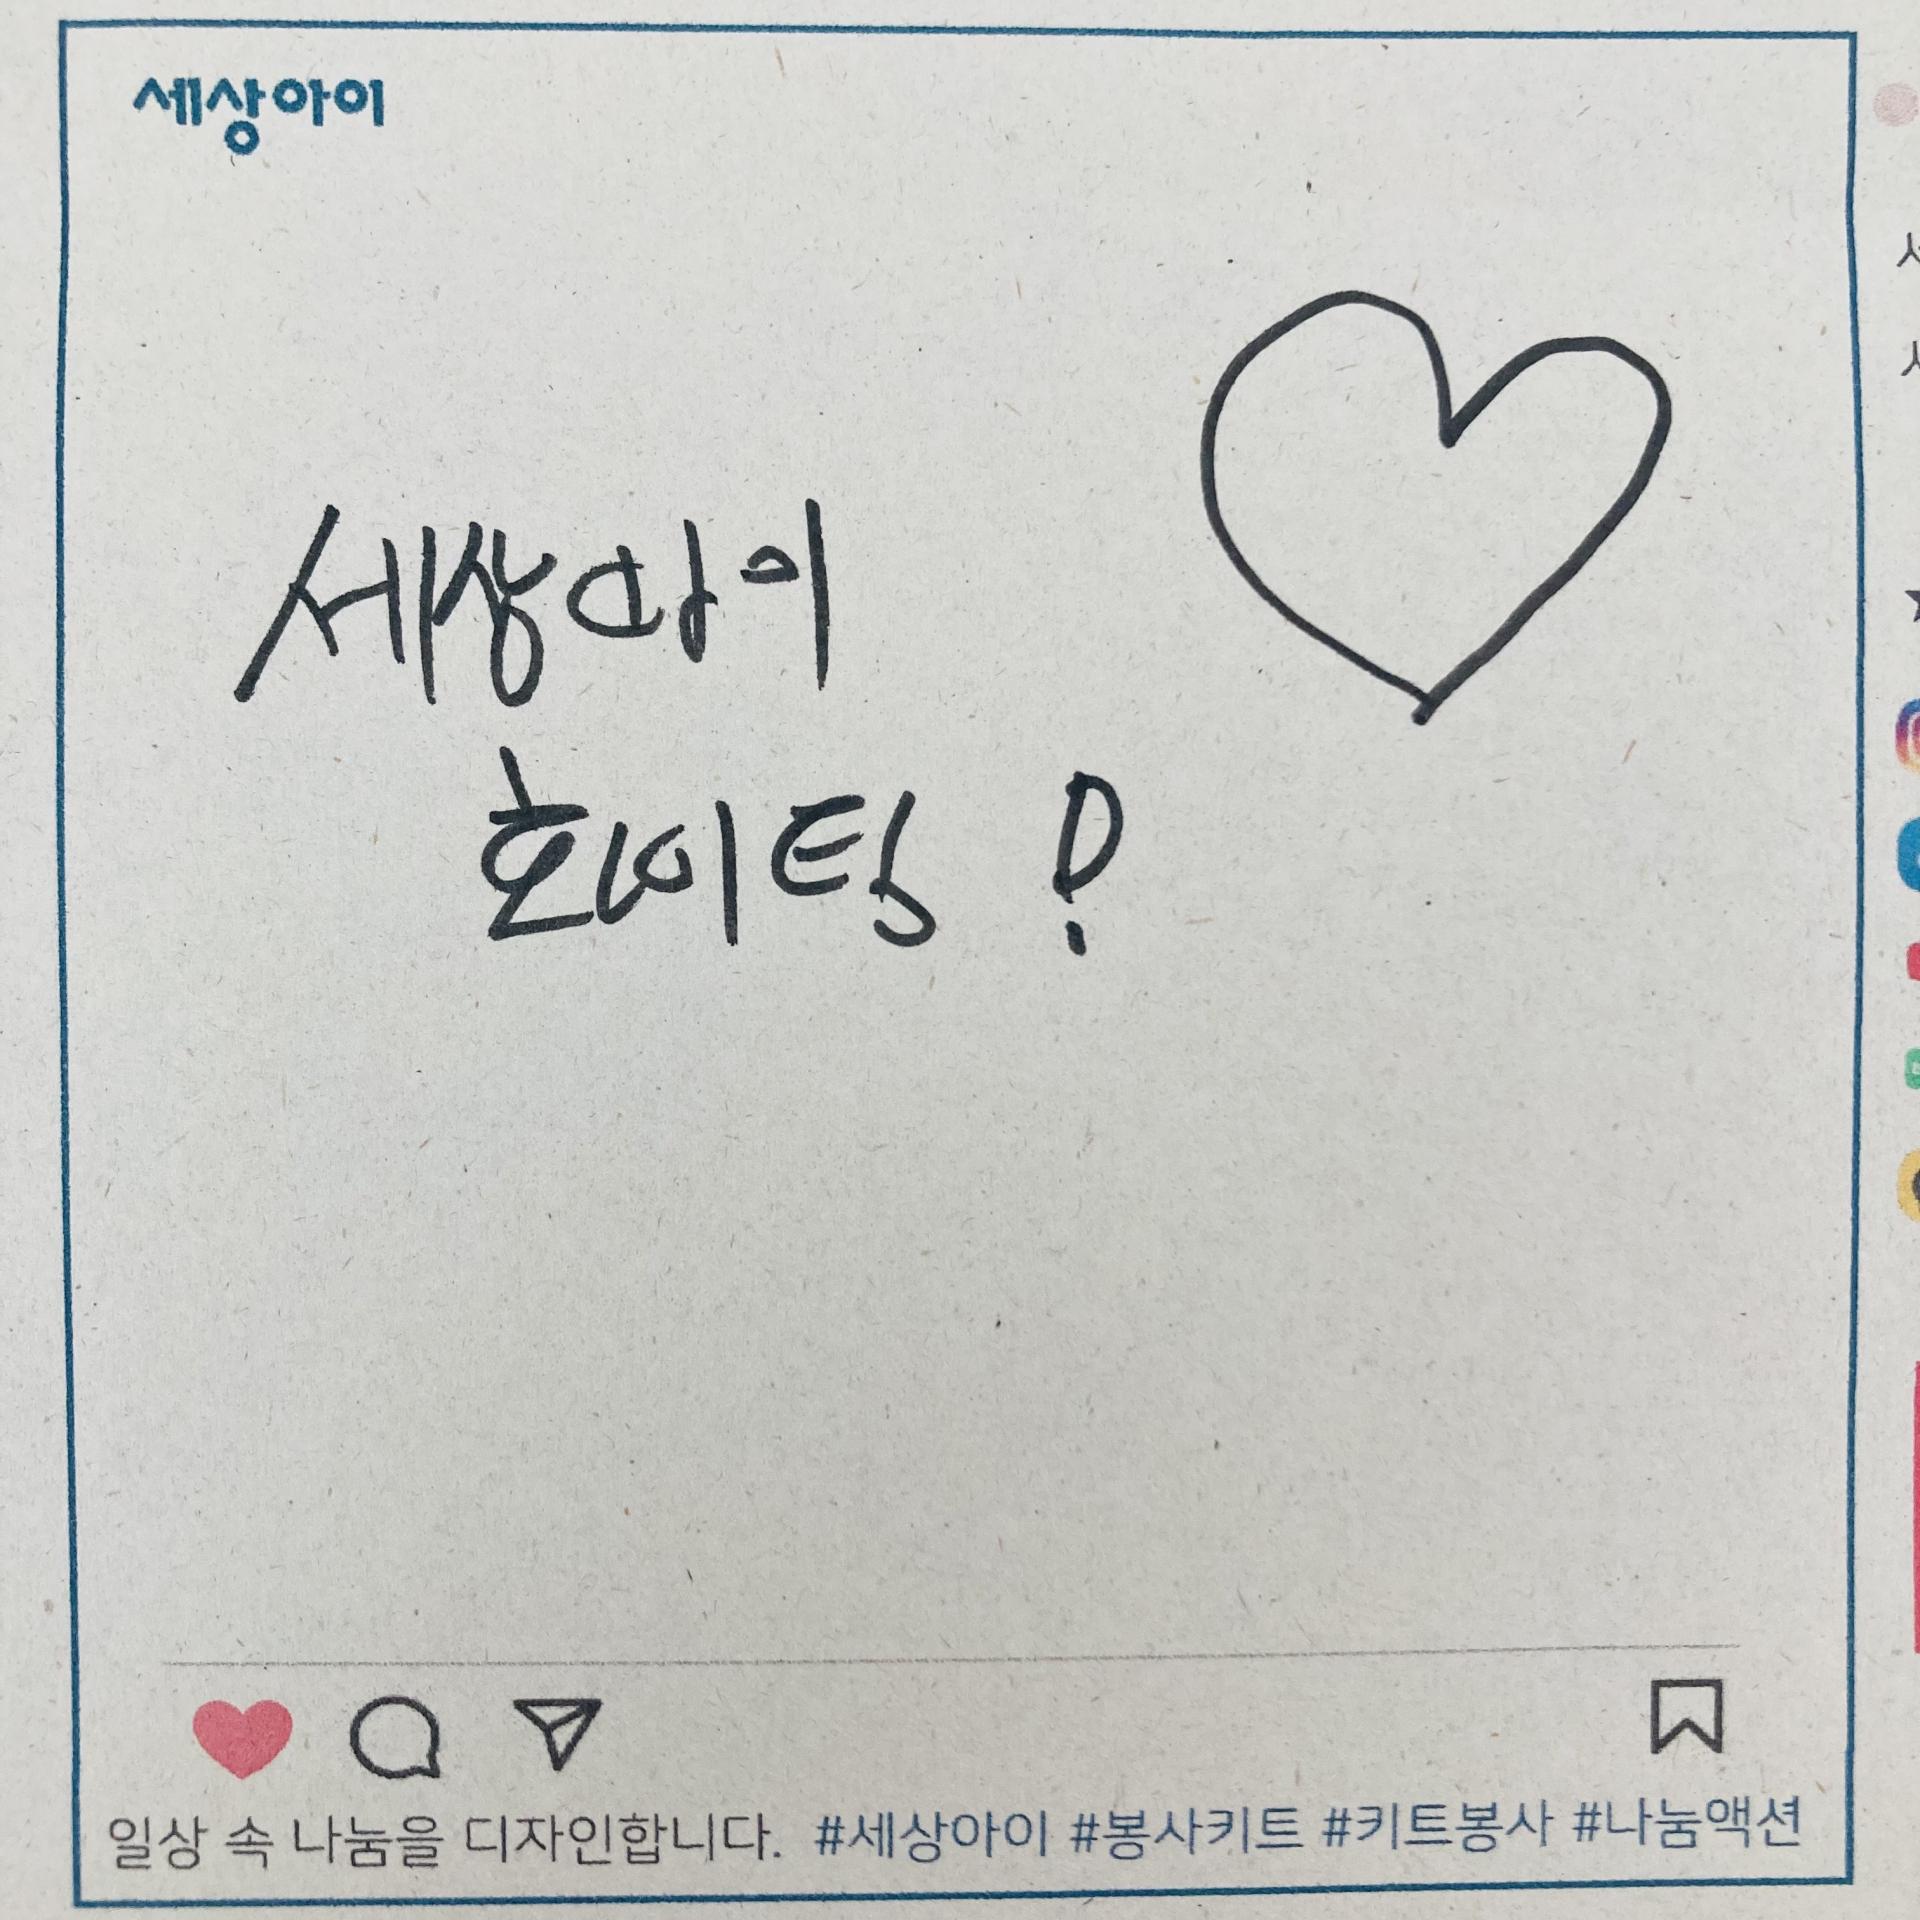 세상아이
세상아이
화이팅!
일상 속 나눔을 디자인합니다. #세상아이 #봉사키트 #키트봉사 #나눔액션